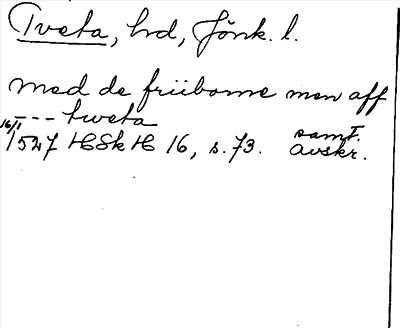 Tveta, hd, Jönk. l.
med de friiborne men aff
--- tweta
16/1 1527 HSkH 16, s. 73. samt. avskr.